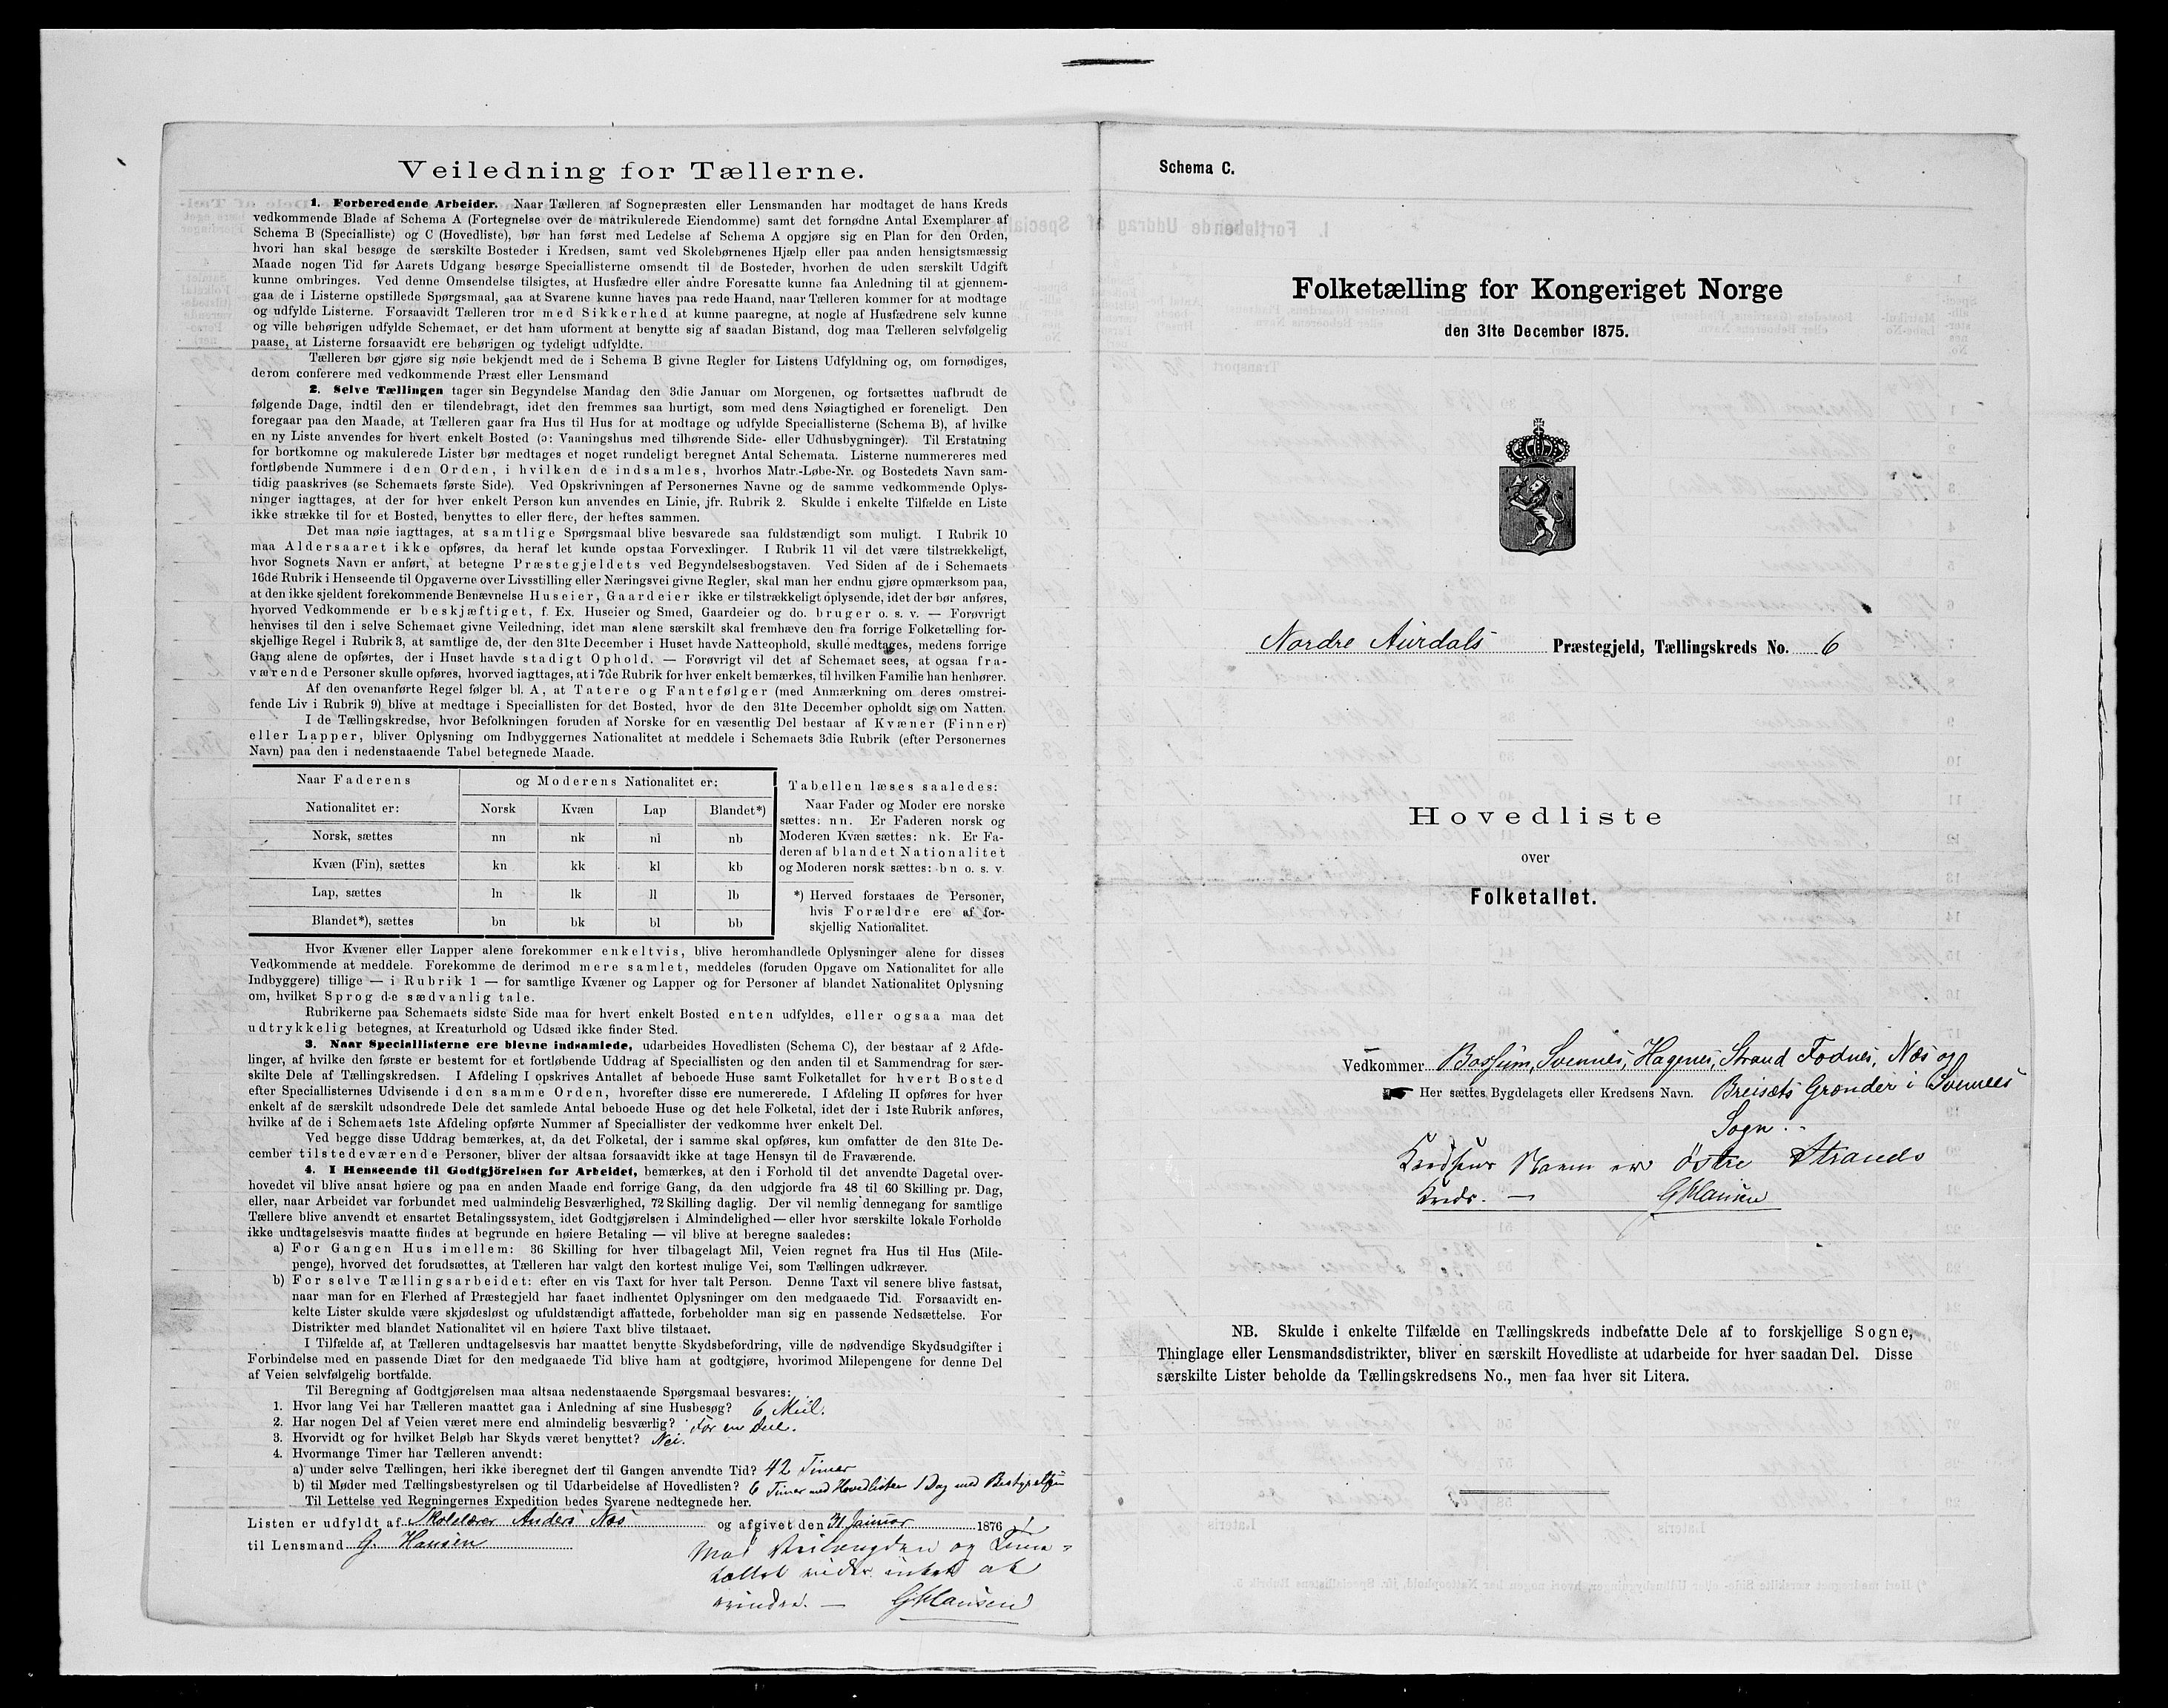 Veiledning for Tællerne.
1. Forberedende Arbeider. Naar Tælleren af Sognepræsten eller Lensmanden har modtaget de hans Kreds
vedkommende Blade af Schema A (Fortegnelse over de matrikulerede Eiendomme) samt det fornødne Antal Exemplarer af
Schema B (Specialliste) og C (Hovedliste), bør han først med Ledelse af Schema A opgjøre sig en Plan for den Orden,
hvori han skal besøge de særskilte Bosteder i Kredsen, samt ved Skolebørnenes Hjælp eller paa anden hensigtsmæssig
Maade nogen Tid før Aarets Udgang besørge Speciallisterne omsendt til de Bosteder, hvorhen de uden særskilt Udgift
kunne ombringes. Ved denne Omsendelse tilsigtes, at Husfædre eller andre Foresatte kunne faa Anledning til at gjennem-
gaa de i Listerne opstillede Spørgsmaal, saa at Svarene kunne haves paa rede Haand, naar Tælleren kommer for at modtage
og udfylde Listerne. Forsaavidt Tælleren tror med Sikkerhed at kunne paaregne, at nogle af Husfædrene selv kunne
og ville behørigen udfylde Schemaet, er det ham uforment at benytte sig af saadan Bistand, dog maa Tælleren selvfølgelig
paase, at Listerne forsaavidt ere behørigen og tydeligt udfyldte.
Tælleren bør gjøre sig nøie bekjendt med de i Schema B givne Regler for Listens Udfyldning og, om fornødiges,
derom conferere med vedkommende Præst eller Lensmand
2. Selve Tællingen tager sin Begyndelse Mandag den 3die Januar om Morgenen, og fortsættes uafbrudt de
følgende Dage, indtil den er tilendebragt, idet den fremmes saa hurtigt, som med dens Nøiagtighed er foreneligt. Den
foregaar paa den Maade, at Tælleren gaar fra Hus til Hus for at modtage og udfylde Speciallisterne (Schema B), af hvilke
en ny Liste anvendes for hvert enkelt Bosted (ɔ: Vaaningshus med tilhørende Side- eller Udhusbygninger). Til Erstatning
for bortkomne og makulerede Lister bør medtages et noget rundeligt beregnet Antal Schemata. Listerne nummereres med
fortløbende Nummere i den Orden, i hvilken de indsamles, hvorhos Matr.-Løbe-Nr. og Bostedets Navn sam-
tidig paaskrives (se Schemaets første Side). Ved Opskrivningen af Personernes Navne og de samme vedkommende Oplys-
ninger iagttages, at der for hver enkelt Person kun anvendes en Linie, jfr. Rubrik 2. Skulde i enkelte Tilfælde en Liste
ikke strække til for et Bosted, benyttes to eller flere, der heftes sammen.
Det maa nøie iagttages, at samtlige Spørgsmaal blive besvarede saa fuldstændigt som muligt. I Rubrik 10
maa Aldersaaret ikke opføres, da heraf let kunde opstaa Forvexlinger. I Rubrik 11 vil det være tilstrækkeligt,
hvor Sognets Navn er anført, at betegne Præstegjeldets ved Begyndelsesbogstaven. Ved Siden af de i Schemaets
16de Rubrik i Henseende til Opgaverne over Livsstilling eller Næringsvei givne Regler, skal man her endnu gjøre opmærksom paa,
at den ikke sjeldent forekommende Benævnelse Huseier, Gaardeier ikke er tilstrækkeligt oplysende, idet der bør anføres,
hvorved Vedkommende er beskjæftiget, f. Ex. Huseier og Smed, Gaardeier og do. bruger o. s. v. — Forøvrigt
henvises til den i selve Schemaet givne Veiledning, idet man alene særskilt skal fremhæve den fra forrige Folketælling for-
skjellige Regel i Rubrik 3, at samtlige de, der den 31te December i Huset havde Natteophold, skulle medtages, medens forrige
Gang alene de opførtes, der i Huset havde stadigt Ophold. — Forøvrigt vil det af Schemaet sees, at ogsaa fra-
værende Personer skulle opføres, hvorved iagttages, at i 7de Rubrik for hver enkelt bemærkes, til hvilken Familie han henhører.
Af den ovenanførte Regel følger bl. A, at Tatere og Fantefølger (med Anmærkning om deres omstrei-
fende Liv i Rubrik 9) blive at medtage i Speciallisten for det Bosted, hvor de den 31te December opholdt sig om Natten.
I de Tællingskredse, hvor Befolkningen foruden af Norske for en væsentlig Del bestaar af Kvæner (Finner)
eller Lapper, bliver Oplysning om Indbyggernes Nationalitet at meddele i Schemaets 3die Rubrik (efter Personernes
Navn) paa den i nedenstaaende Tabel betegnede Maade.
Naar Faderens og Moderens Nationalitet er:
Nationalitet er: Norsk Kvæn Lap Blandet*)
Norsk, sættes nn nk nl nb
Kvæn (Fin), sættes kn kk kl kb
Lap, sættes ln lk ll lb
Blandet*), sættes bn bk bl bb
Tabellen læses saaledes:
Naar Fader og Moder ere norske
sættes: nn. Er Faderen norsk og
Moderen Kvæn sættes: nk. Er Fa-
deren af blandet Nationalitet
og Moderen norsk sættes: bn o. s. v.
*) Herved forstaaes de Personer,
hvis Forældre ere af for-
skjellig Nationalitet.
Hvor Kvæner eller Lapper alene forekommer enkeltvis, blive heromhandlede Oplysninger alene for disses
Vedkommende at meddele. Forekomme de derimod mere samlet, meddeles (foruden Opgave om Nationalitet for alle
Indbyggere) tillige — i Rubrik 1 — for samtlige Kvæner og Lapper og for Personer af blandet Nationalitet Oplysning
om, hvilket Sprog de sædvanlig tale.
Rubrikerne paa Schemaets sidste Side maa for hvert enkelt Bosted enten udfyldes, eller ogsaa maa det
udtrykkelig betegnes, at Kreaturhold og Udsæd ikke finder Sted.
3. Naar Speciallisterne ere blevne indsamlede, udarbeides Hovedlisten (Schema C), der bestaar af 2 Afde-
linger, af hvilke den første er bestemt for et fortløbende Uddrag af Speciallisten og den anden til et Sammendrag for sær-
skilte Dele af Tællingskredsen. I Afdeling I opskrives Antallet af beboede Huse samt Folketallet for hvert Bosted
efter Speciallisternes Udvisende i den samme Orden, hvorefter disse ere numererede. I Afdeling II opføres for hver
enkelt af de særskilt udsondrede Dele det samlede Antal beboede Huse og det hele Folketal, idet der i 1ste Rubrik anføres,
hvilke af de i Schemaets 1ste Afdeling opførte Nummer af Speciallister der vedkomme hver enkelt Del.
Ved begge disse Uddrag bemærkes, at, da det Folketal, der i samme skal opføres, kun omfatter de den 31te De-
cember tilstedeværende Personer, bliver der altsaa forsaavidt ikke at tage Hensyn til de Fraværende.
4. I Henseende til Godtgjörelsen for Arbeidet, bemærkes, at den i Forhold til det anvendte Dagetal over-
hovedet vil blive ansat høiere og paa en anden Maade end forrige Gang, da den udgjorde fra 48 til 60 Skilling pr. Dag,
eller, naar Arbeidet var forbundet med ualmindelig Besværlighed, 72 Skilling daglig. Der vil nemlig dennegang for samtlige
Tællere blive anvendt et ensartet Betalingssystem, idet Godtgjørelsen i Almindelighed — eller hvor særskilte lokale Forholde
ikke undtagelsesvis maatte findes at begrunde en høiere Betaling — vil blive at beregne saaledes:
a) For Gangen Hus imellem: 36 Skilling for hver tilbagelagt Mil, Veien regnet fra Hus til Hus (Mile-
penge), hvorved det forudsættes, at Tælleren har valgt den kortest mulige Vei, som Tællingen udkræver.
b) For selve Tællingsarbeidet: efter en vis Taxt for hver talt Person. Denne Taxt vil senere blive fastsat,
naar man for en Flerhed af Præstegjeld har faaet indhentet Oplysninger om den medgaaede Tid. Forsaavidt en-
kelte Lister skulde være skjødesløst og ufuldstændigt affattede, forbeholder man sig en passende Nedsættelse. For
Distrikter med blandet Nationalitet vil en høiere Taxt blive tilstaaet.
I Tilfælde af, at Tælleren undtagelsesvis har maattet benytte Skydsbefordring, ville de nødvendige Skydsudgifter i
Forbindelse med en passende Diæt for den medgaaede Tid blive ham at godtgjøre, hvorimod Milepengene for denne Del
af Veien selvfølgelig bortfalde.
Til Beregning af Godtgjørelsen maa altsaa nedenstaaende Spørgsmaal besvares:
1. Hvor lang Vei har Tælleren maattet gaa i Anledning af sine Husbesøg? 6 Miil.
2. Har nogen Del af Veien været mere end almindelig besværlig? For en Deel.
3. Hvorvidt og for hvilket Beløb har Skyds været benyttet? Nei.
4. Hvormange Timer har Tælleren anvendt:
a) under selve Tællingen, heri ikke iberegnet den til Gangen anvendte Tid? 42 Timer
b) til Møder med Tællingsbestyrelsen og til Udarbeidelse af Hovedlisten? 6 Timer med Hovedlisten 1 Dag med Bestyrelsen
Til Lettelse ved Regningernes Expedition bedes Svarene nedtegnede her.
Listen er udfyldt af Skolelærer Anders Næs og afgivet den 31 Januar 1876
til Lensmand G. Hansen
Mod Veilængden og Time-
tallet vides intet at
erindre. — G Hansen
Schema C.
Folketælling for Kongeriget Norge
den 31te December 1875.
Nordre Aurdals Præstegjeld, Tællingskreds No. 6
Hovedliste
over
Folketallet.
Vedkommer Bossum, Svennes, Hagenes, Strand Fodnes, Næs og
Her sættes Bygdelagets eller Kredsens Navn. Breisæts Grænder i Svennes
Sogn.
Kredsens Navn er Østre Strands
Kreds. — G Hansen
NB. Skulde i enkelte Tilfælde en Tællingskreds indbefatte Dele af to forskjellige Sogne,
Thinglage eller Lensmandsdistrikter, bliver en særskilt Hovedliste at udarbeide for hver saadan Del. Disse
særskilte Lister beholde da Tællingskredsens No., men faa hver sit Litera.